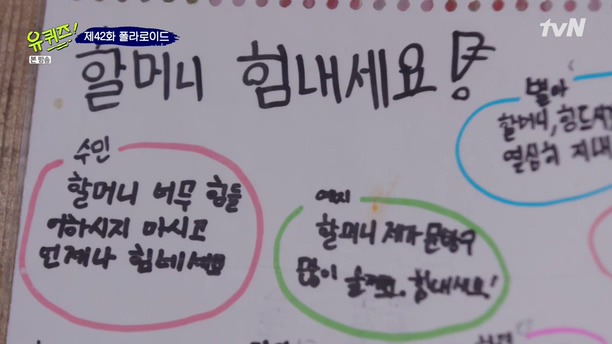 유퀴즈!
본 방송
제42화 폴라로이드
tvN
할머니 힘내세요!
수민
할머니 너무 힘들
어하시지 마시고
언제나 힘네세요
예지
할머니 제가 문방구
많이 올게요. 힘내세요!
별아
할머니, 힘드시
열심히 지내